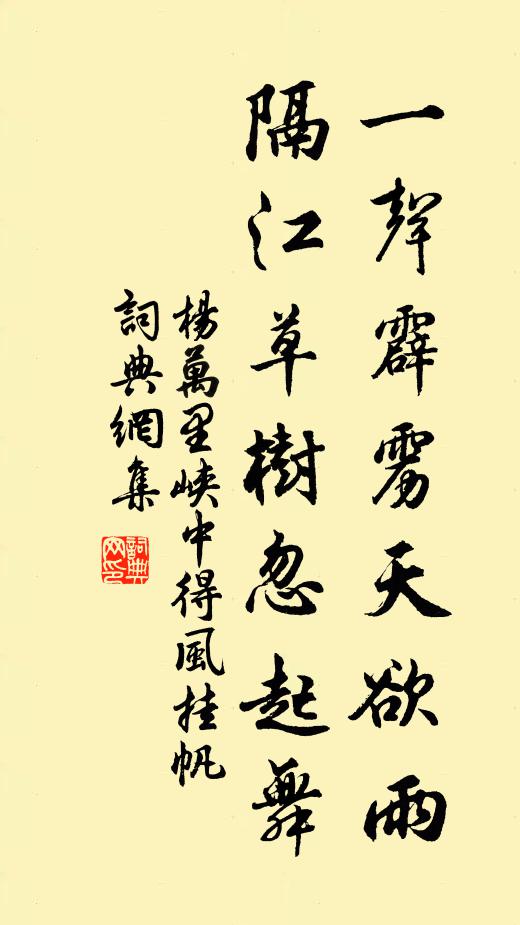 一聲霹雳天欲雨
隔江草樹忽起舞
楊萬里峽中得風挂帆
詞典網集
詞典网印